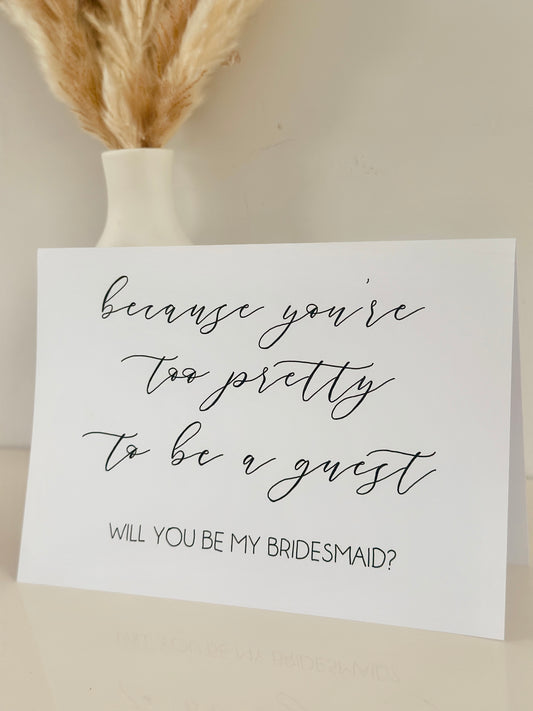 because you're
too pretty
to be a guest
WILL YOU BE MY BRIDESMAID?